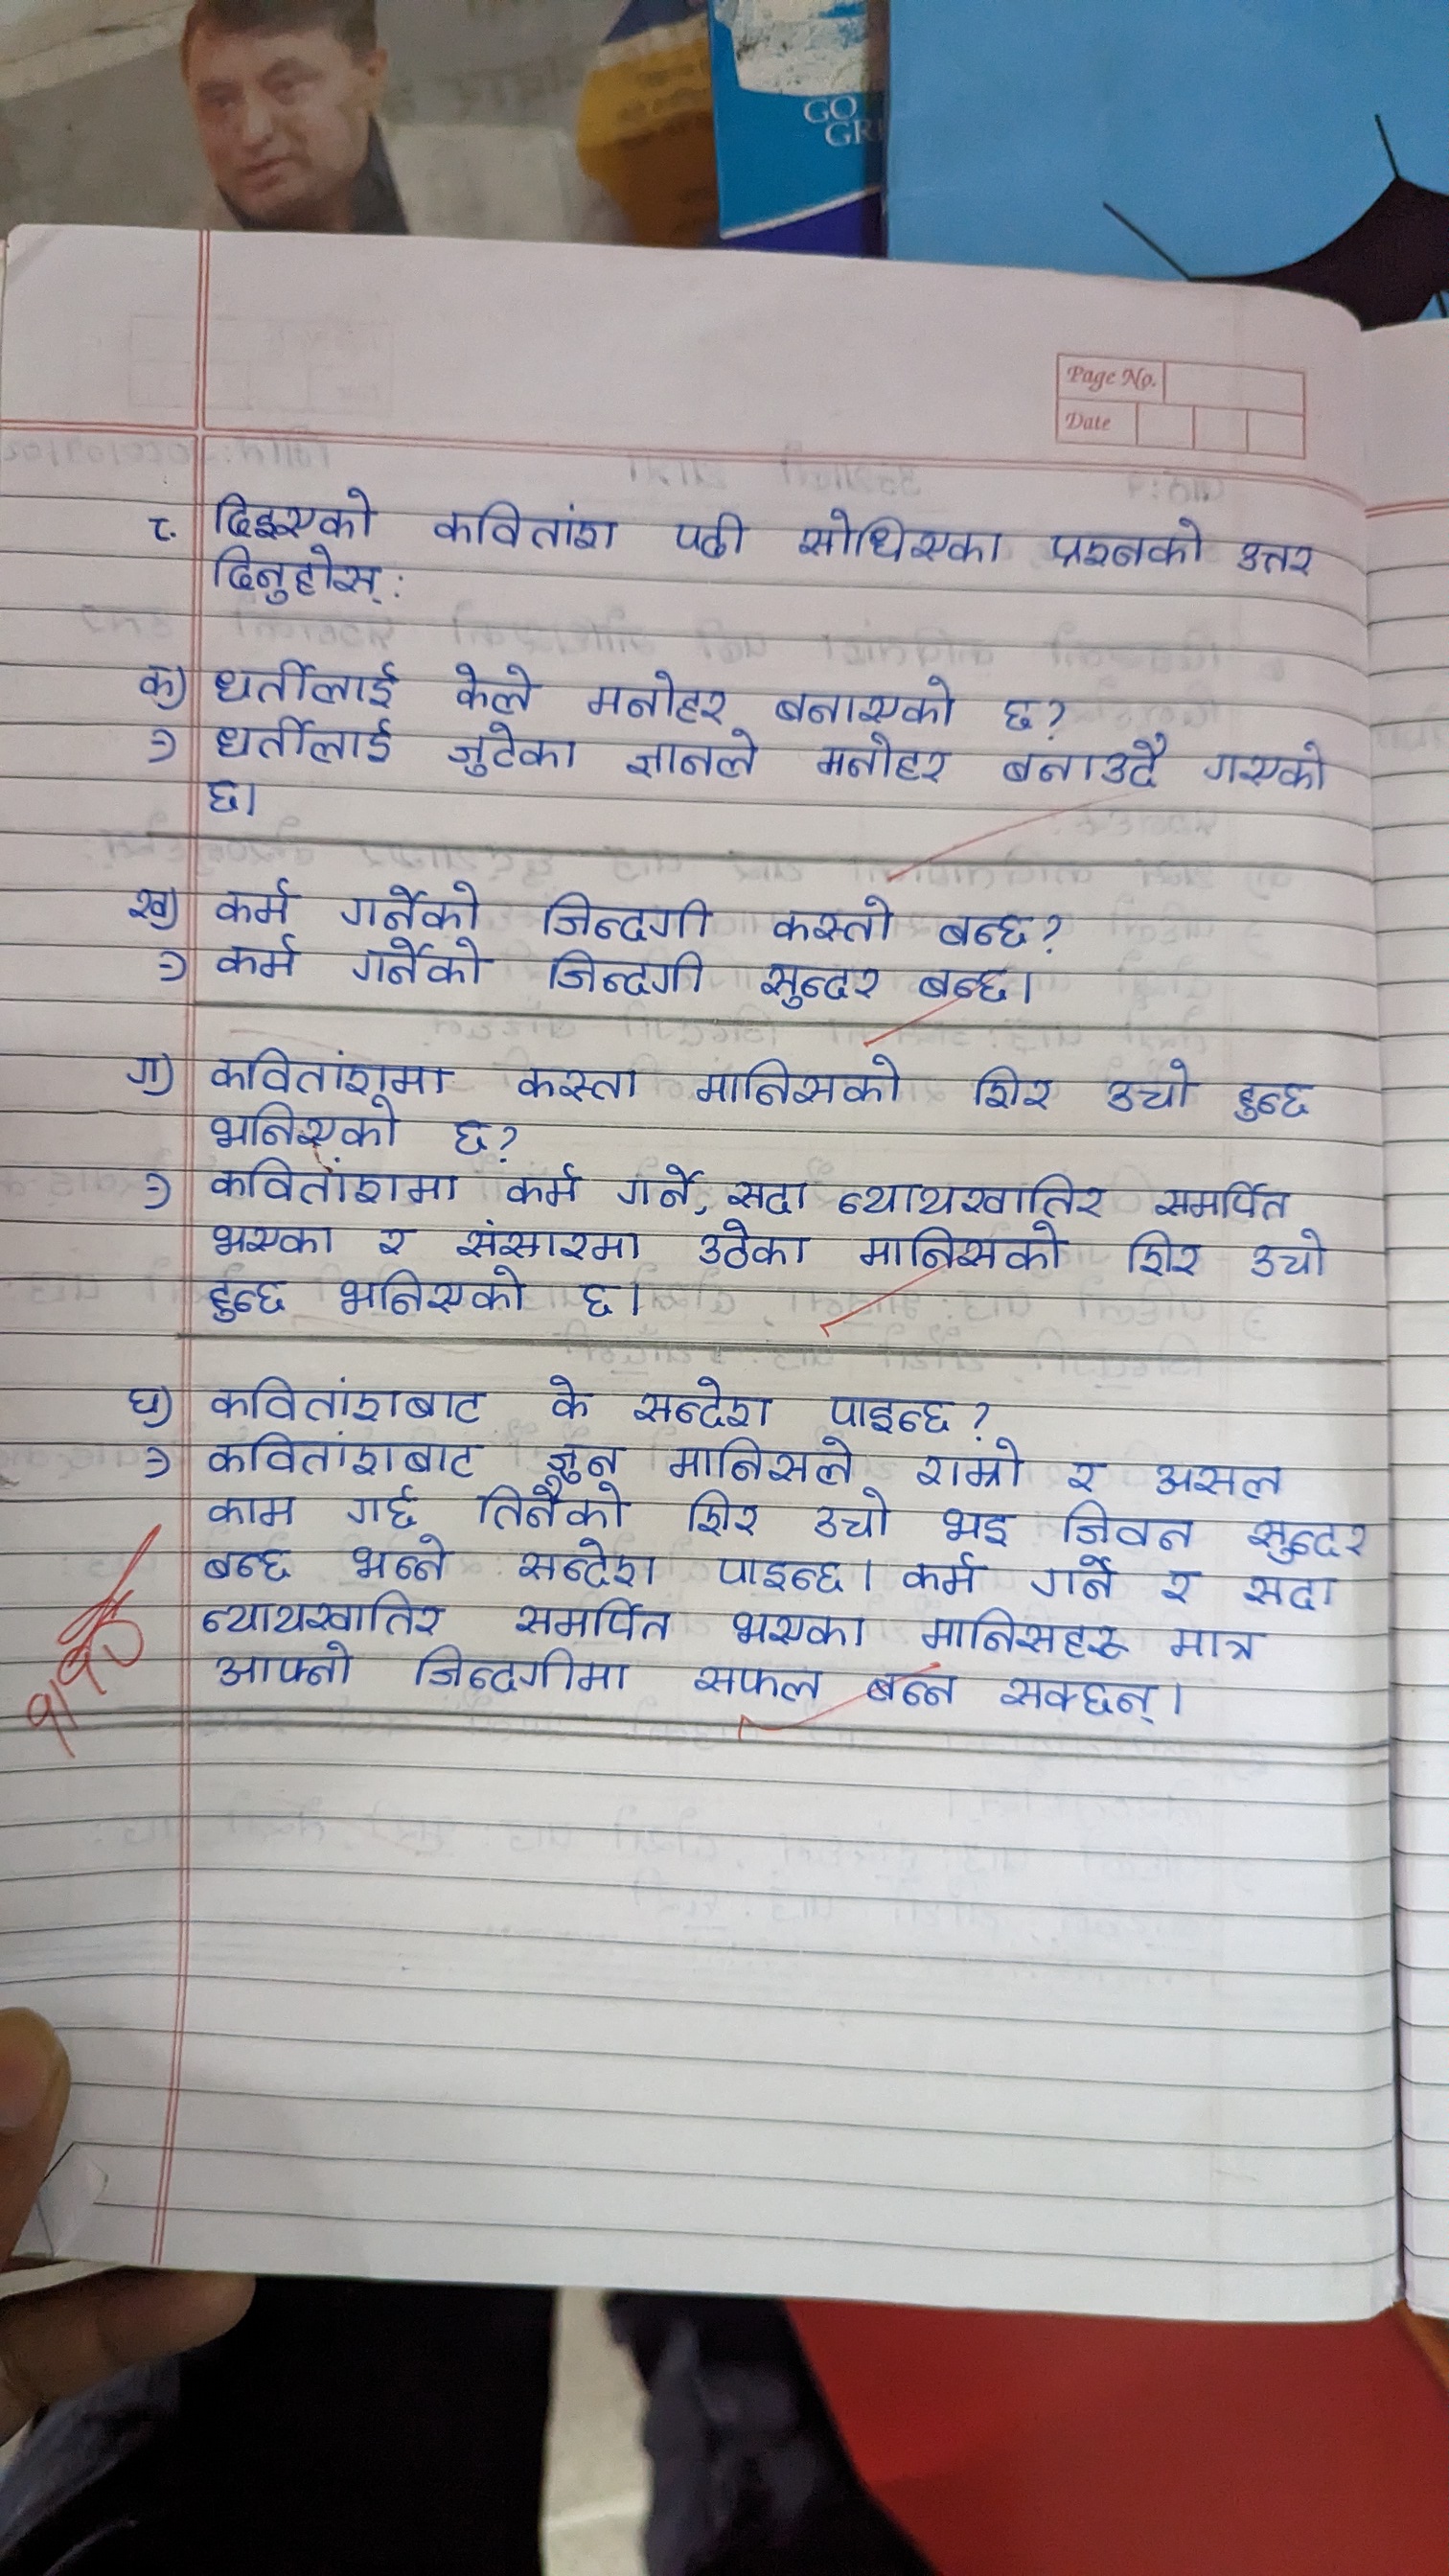 GO
GR
Page No.
Date
८. दिइएको कवितांश पढी सोधिएका प्रश्नको उत्तर
दिनुहोस्:
क) धर्तीलाई केले मनोहर बनाएको छ?
⇒ धर्तीलाई जुटेका ज्ञानले मनोहर बनाउदै गएको
छ।
ख) कर्म गर्नेको जिन्दगी कस्तो बन्छ?
⇒ कर्म गर्नेको जिन्दगी सुन्दर बन्छ।
ग) कवितांशमा कस्ता मानिसको शिर उचो हुन्छ
भनिएको छ?
⇒ कवितांशमा कर्म गर्ने, सदा न्यायखातिर समर्पित
भएका र संसारमा उठेका मानिसको शिर उचो
हुन्छ भनिएको छ।
घ) कवितांशबाट के सन्देश पाइन्छ?
⇒ कवितांशबाट जुन मानिसले राम्रो र असल
काम गर्छ तिनैको शिर उचो भइ जिवन सुन्दर
बन्छ भन्ने सन्देश पाइन्छ। कर्म गर्ने र सदा
न्यायखातिर समर्पित भएका मानिसहरू मात्र
आफ्नो जिन्दगीमा सफल बन्न सक्छन्।